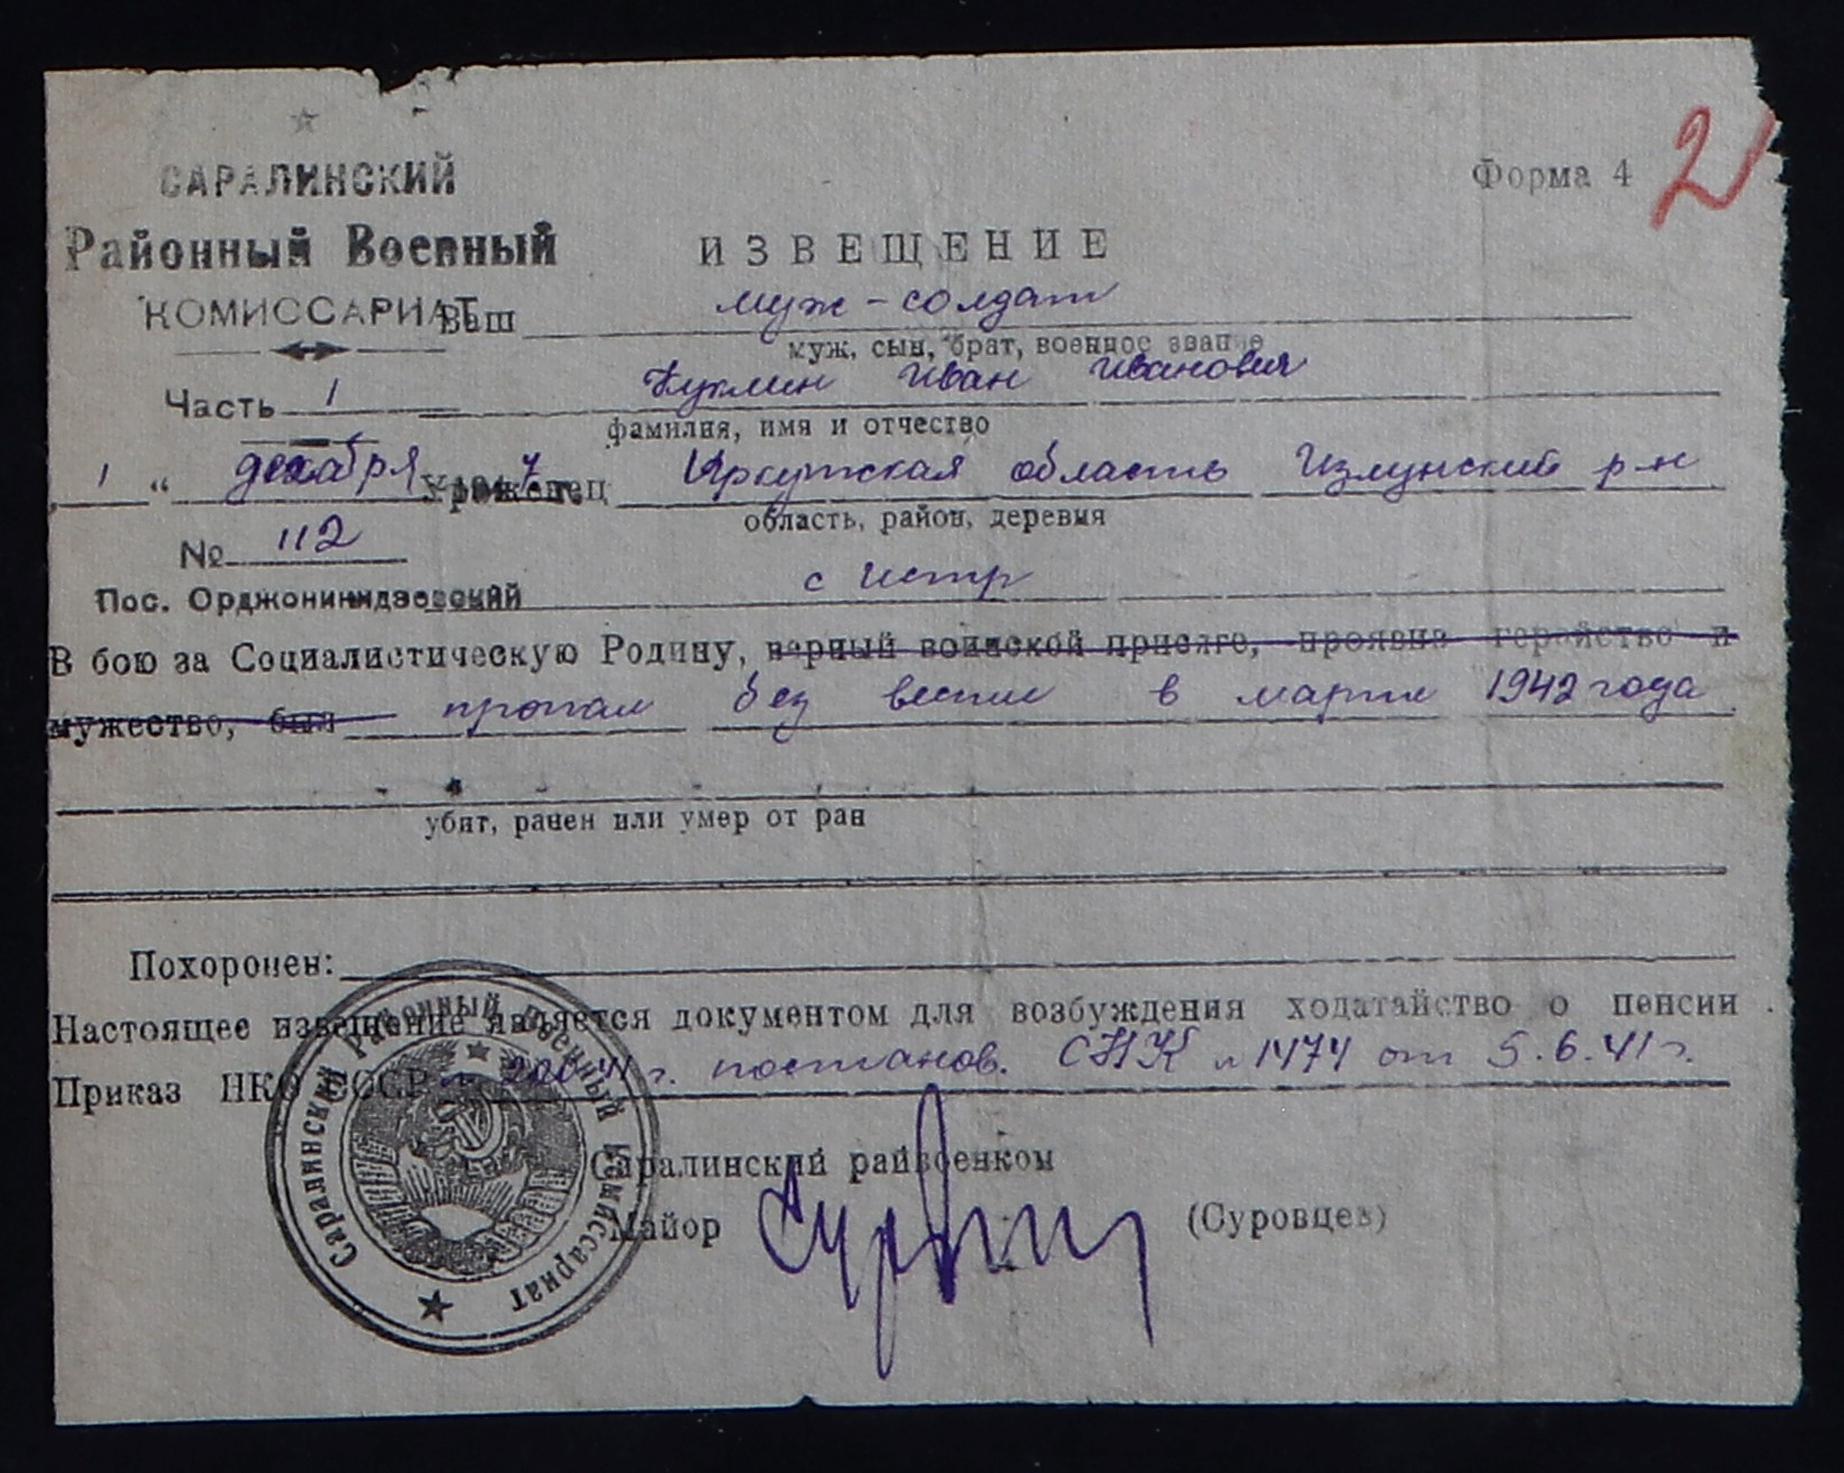 САРАЛИНСКИЙ
Форма 4
21
Районный Военный
ИЗВЕЩЕНИЕ
КОМИССАРИАТ
Ваш муж - солдат
муж, сын, брат, военное звание
Часть 1
Куклин Иван Иванович
фамилия, имя и отчество
1 " декабря 1947 г.
Уроженец Иркутская область Излунский р-н
область, район, деревня
№ 112
Пос. Орджоникидзевский
с Истр
В бою за Социалистическую Родину, верный воинской присяге, проявив геройство и
мужество, был пропал без вести в марте 1942 года
убит, ранен или умер от ран
Похоронен:
Настоящее извещение является документом для возбуждения ходатайство о пенсии .
Приказ НКО СССР 41 г. постанов. СНК № 1474 от 5.6.41 г.
Саралинский райвоенком
Майор (Суровцев)
Саралинский Районный Военный Комиссариат